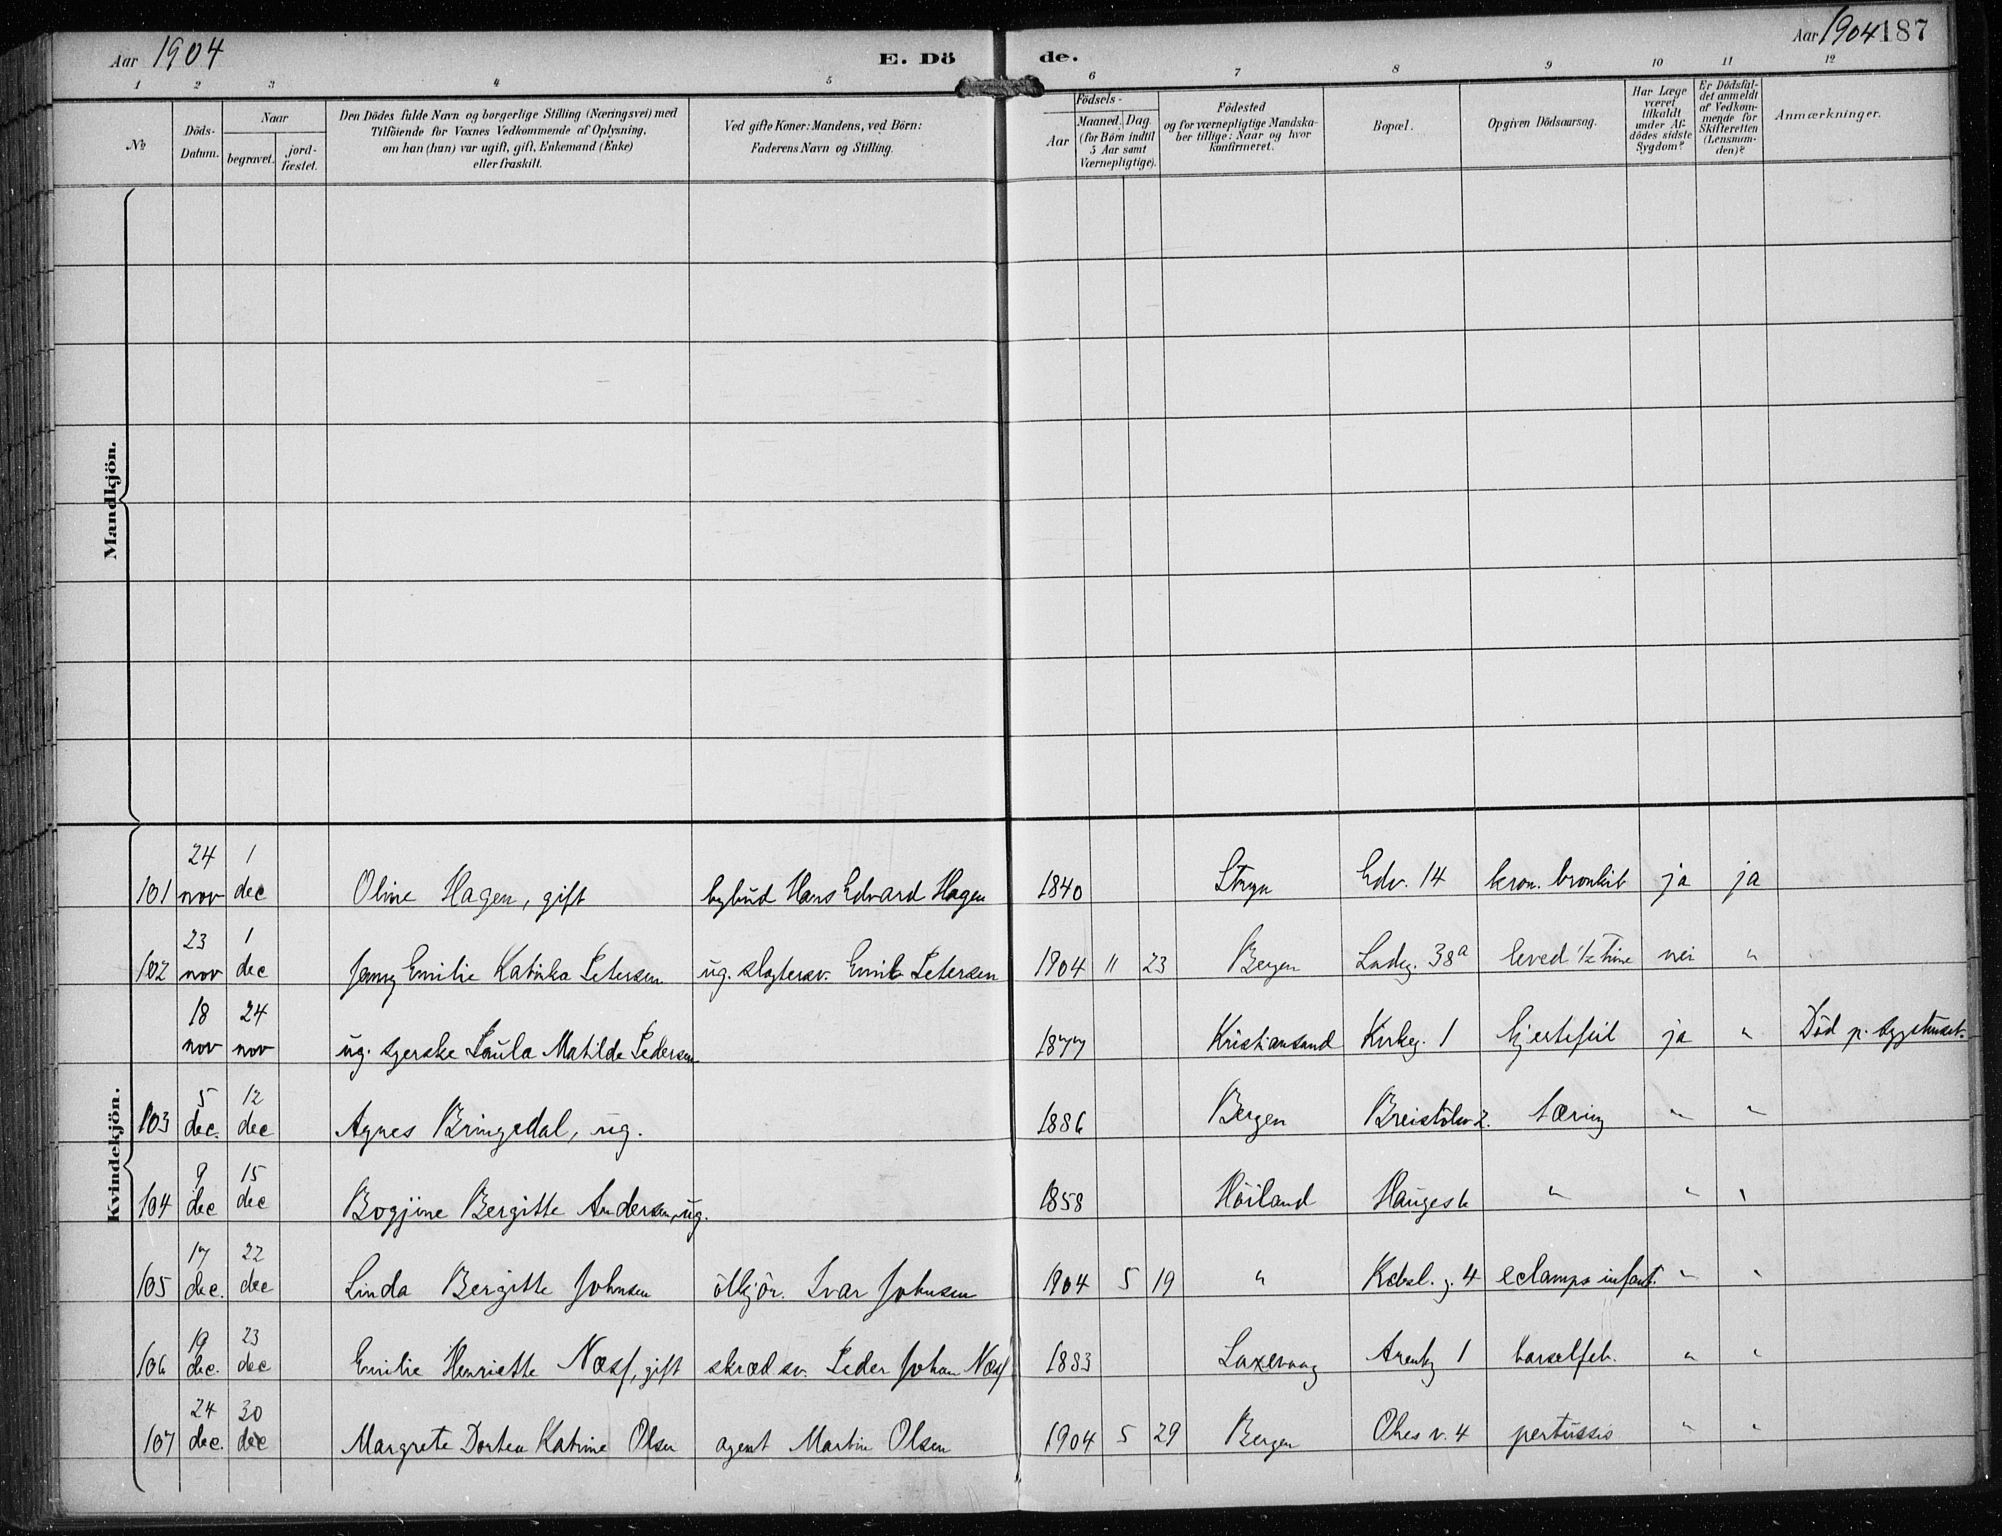 Aar 1904
E. Dö
de.
Aar 1904 187
1 2 3 4 5 6 7 8 9 10 11 12
№
Döds-
Datum.
Naar
begravet.
jord-
fæstet.
Den Dödes fulde Navn og borgerlige Stilling (Næringsvei) med
Tilföiende for Voxnes Vedkommende af Oplysning,
om han (hun) var ugift, gift, Enkemand (Enke)
eller fraskilt.
Ved gifte Koner: Mandens, ved Börn:
Faderens Navn og Stilling.
Födsels-
Aar
Maaned. Dag.
(for Börn indtil
5 Aar samt
Værnepligtige).
Födested
og for værnepligtige Mandska-
ber tillige: Naar og hvor
konfirmeret.
Bopæl.
Opgiven Dödsaarsag.
Har Læge
været
tilkaldt
under Af-
dödes sidste
Sygdom?
Er Dödsfal-
det anmeldt
af Vedkom-
mende for
Skifteretten
(Lensman-
den)?
Anmærkninger.
Mandkjön.
Kvindekjön.
101 24 nov 1 dec Oline Hagen, gift bybud Hans Edvard Hagen 1840 Stryn Edv. 14 kron. bronkit ja ja
102 23 nov 1 dec Jenny Emilie Katinka Petersen ug. slagtersv. Emil Petersen 1904 11 23 Bergen Ladeg. 38a leved 1/2 time nei "
18 nov 24 nov ug. syerske Paula Matilde Pedersen 1877 Kristiansand Kirkeg. 1 hjertefeil ja " Död p. sygehuset.
103 5 dec. 12 dec Agnes Bringedal, ug. 1886 Bergen Breistölsv. 2. tæring " "
104 9 dec 15 dec Andersen, ug. Bergitte 1858 Höiland Haugesb " " "
105 17 dec. 22 dec Linda Bergitte Johnsen ölkjör. Ivar Johnsen 1904 5 19 " 4 eclamps. infant. " "
106 19 dec. 23 dec Emilie Henriette Næss, gift skræd sv. Peder Johan Næss 1883 Laxevaag 1 barselfeb. " "
107 24 dec. 30 dec Margrete Dortea Katrine Olsen agent Martin Olsen 1904 5 29 Bergen v. 4 pertussis " "